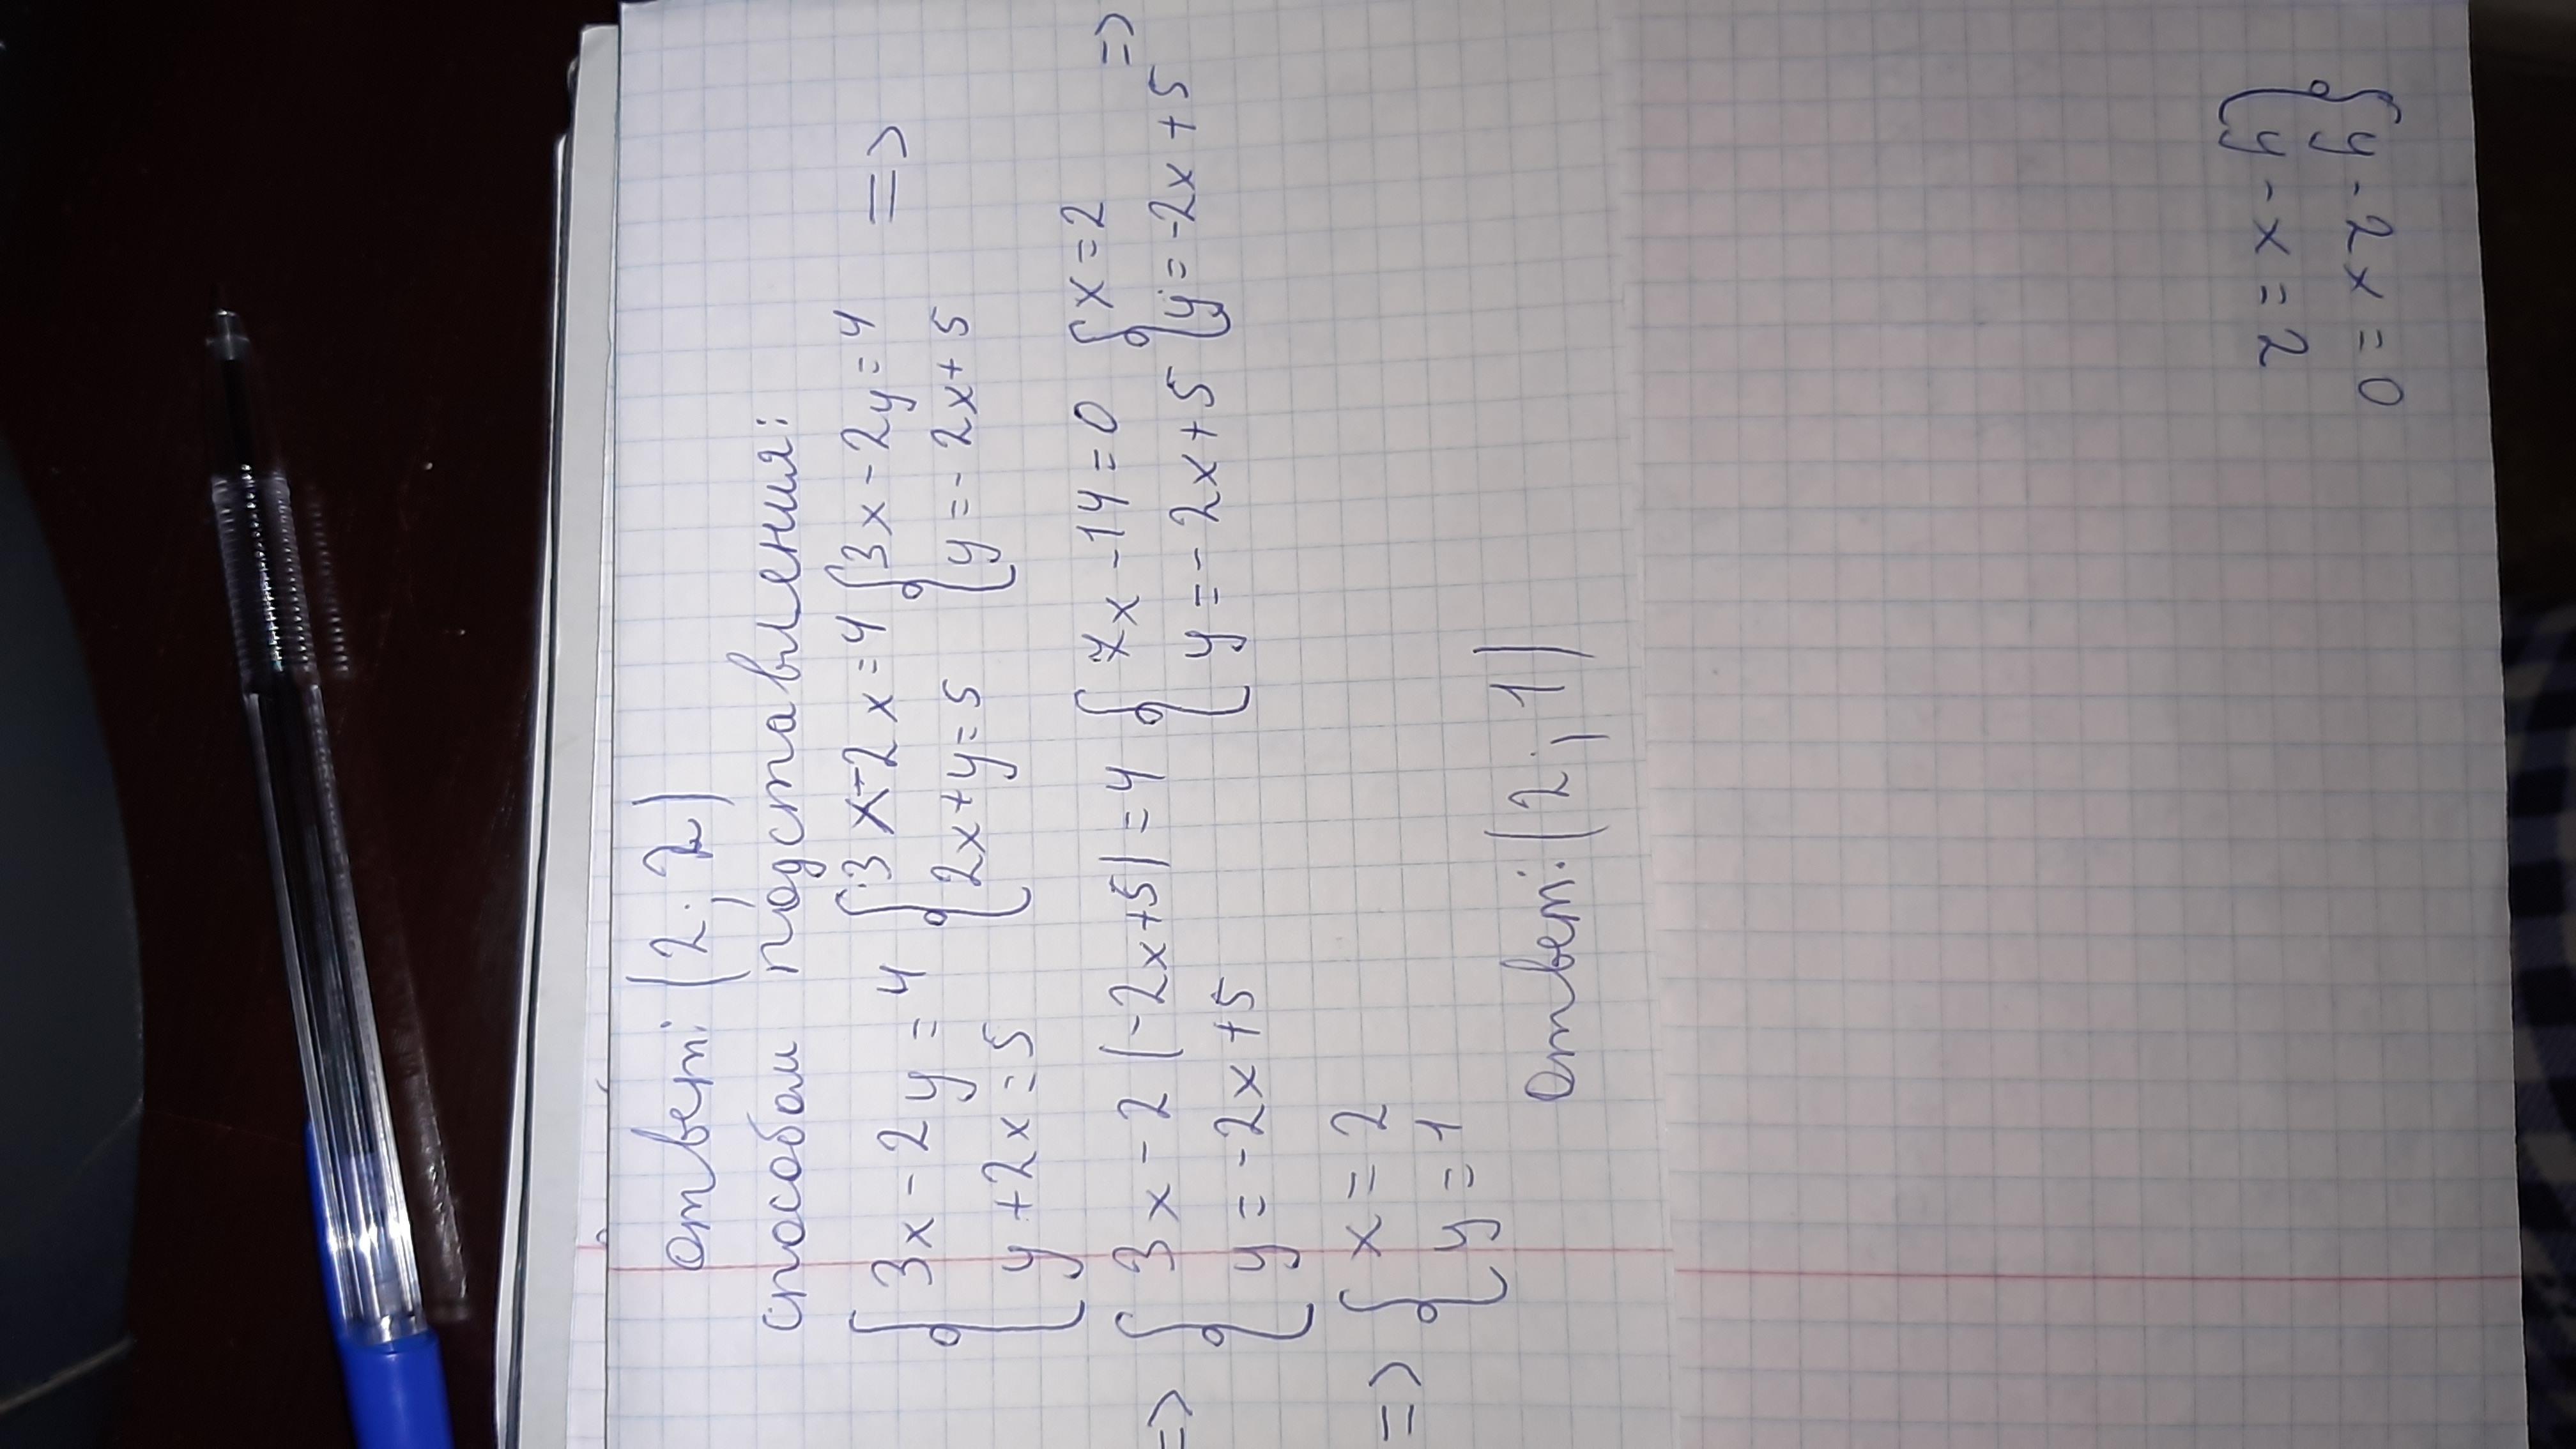 Ответ: (2; 2)
способом подставления:
{ 3x - 2y = 4 { 3x - 2x = 4 { 3x - 2y = 4 =>
y + 2x = 5 2x + y = 5 y = -2x + 5
=> { 3x - 2 (-2x+5) = 4 { 7x - 14 = 0 { x = 2 =>
y = -2x + 5 y = -2x + 5 y = -2x + 5
=> { x = 2
y = 1
Ответ: (2; 1)
{ y - 2x = 0
y - x = 2